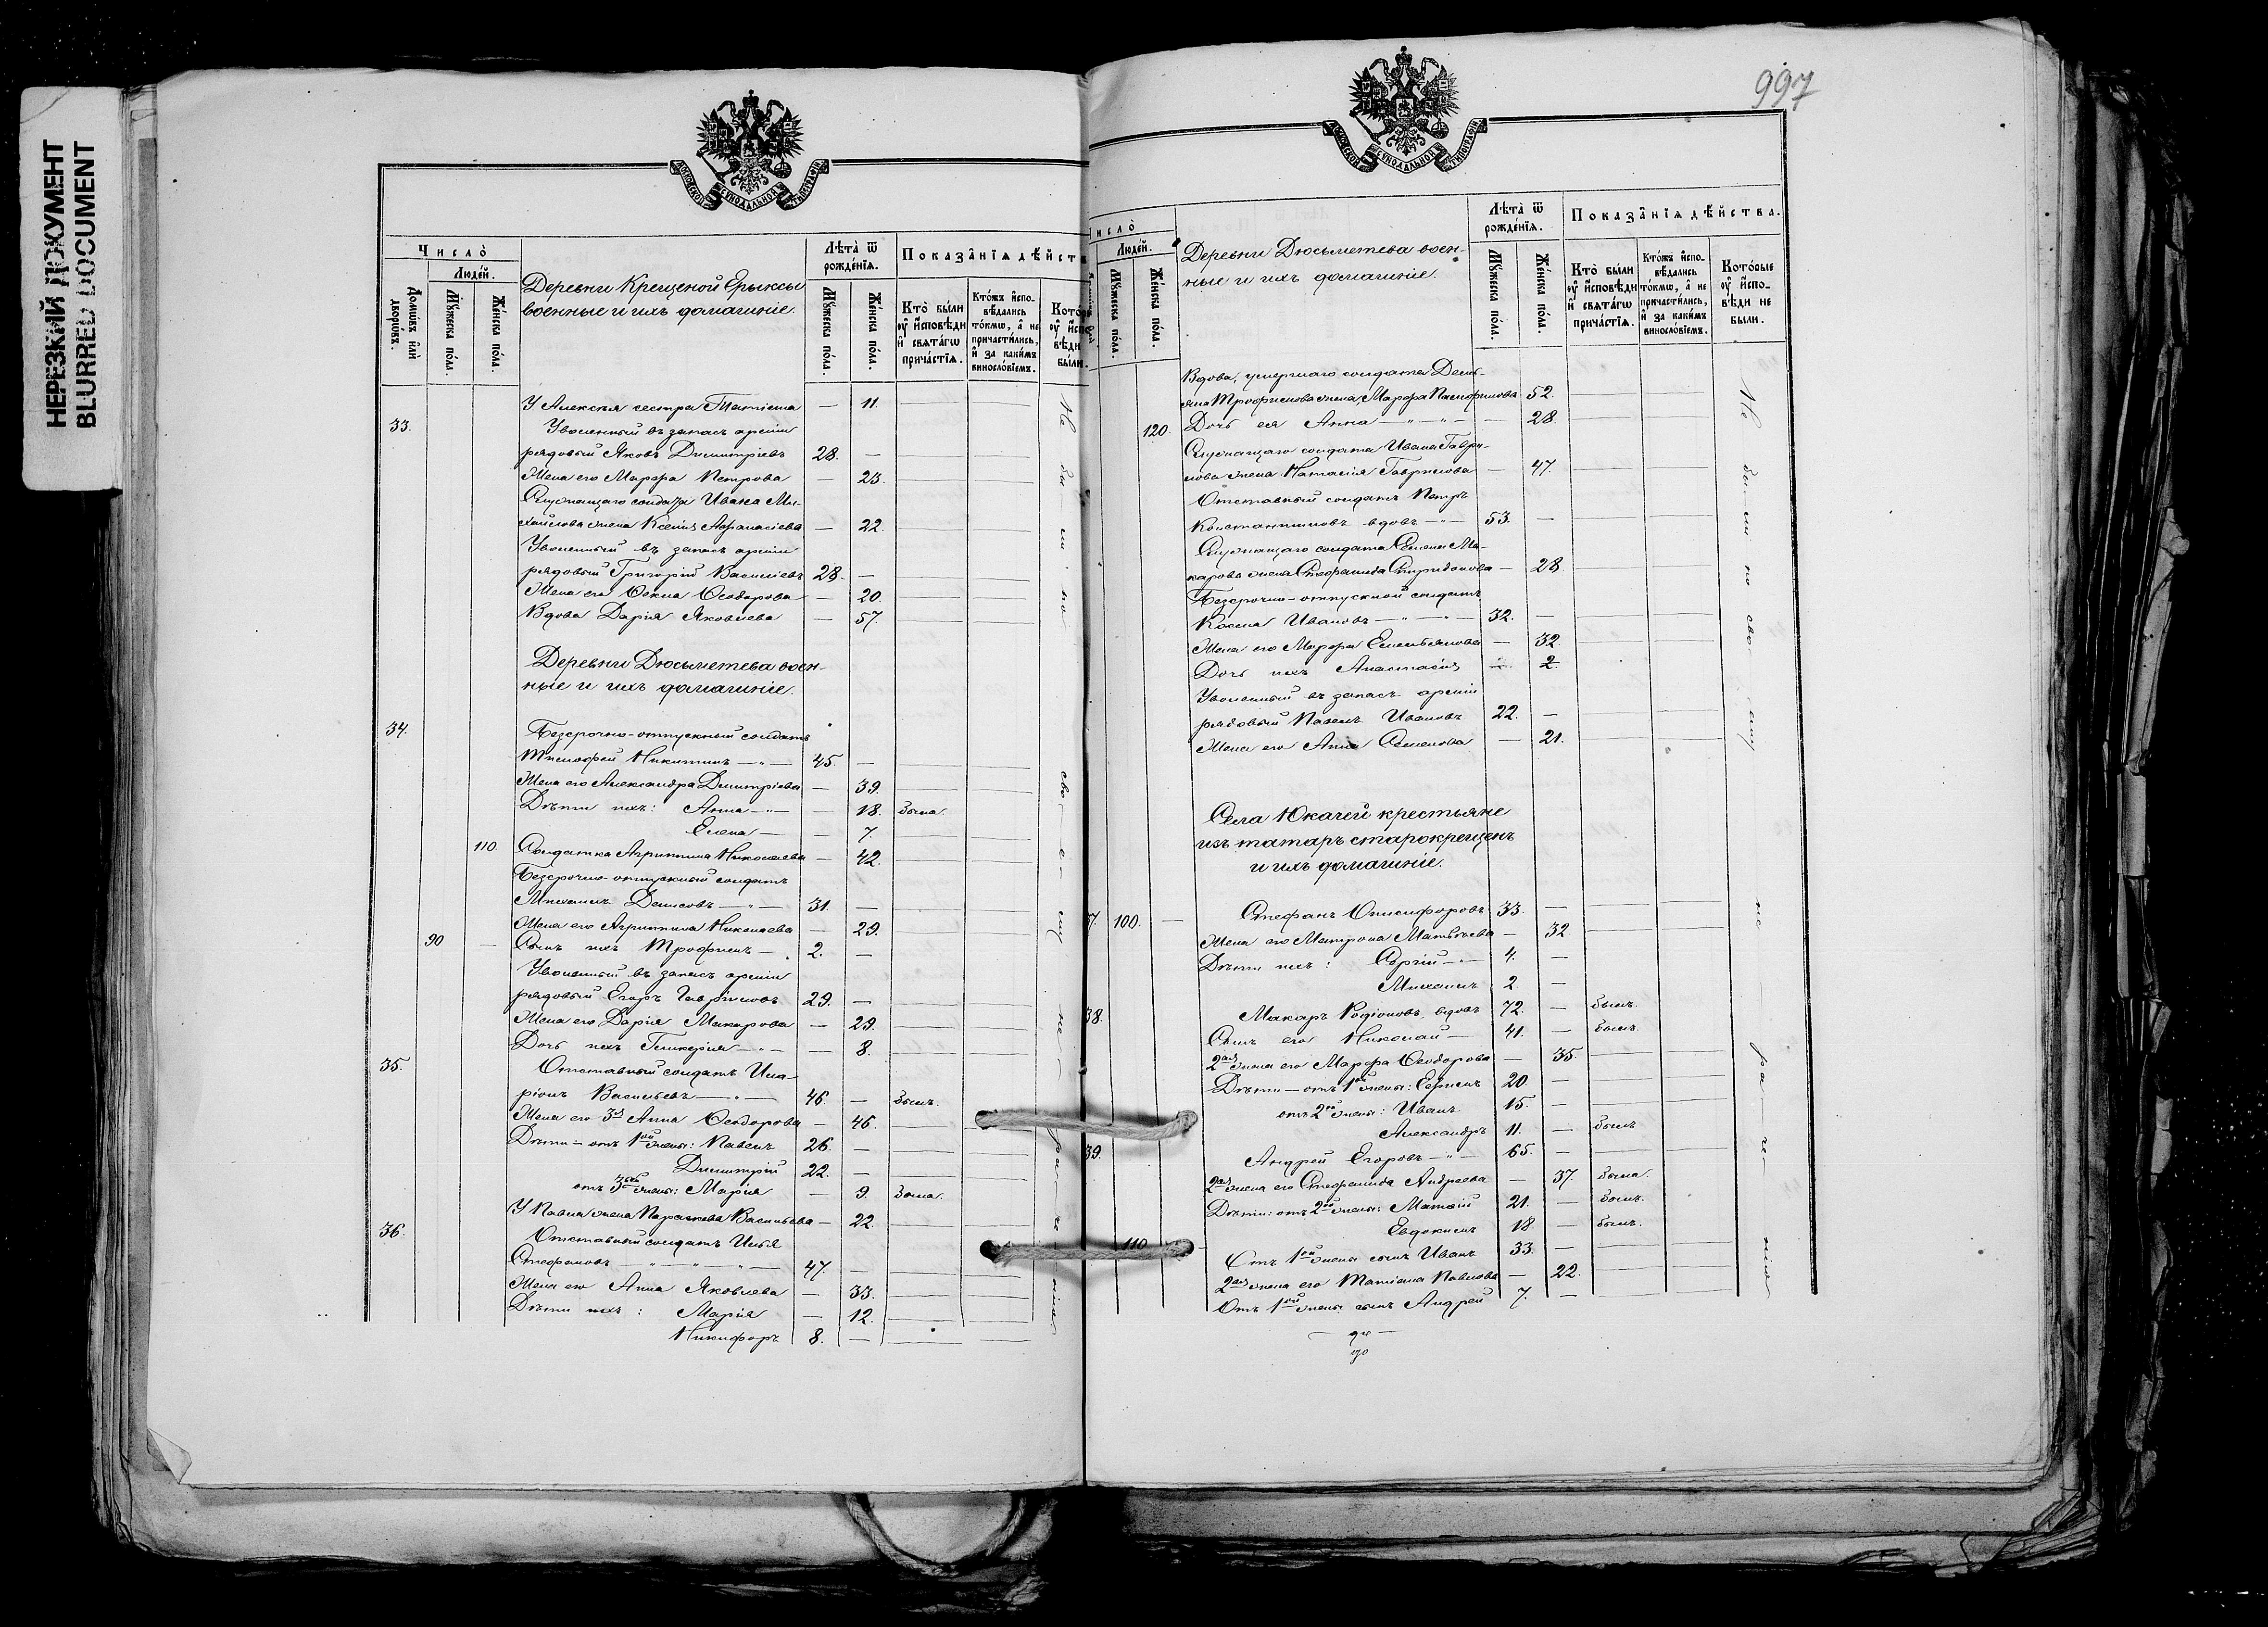 НЕРЕЗКИЙ ДОКУМЕНТ
BLURRED DOCUMENT
МОСКОВСКОЙ СѴНОДАЛЬНОЙ ТИПОГРАФІИ
Число̀
Домѡ́въ и҆лѝ дворѡ́въ.
Люде́й.
Мꙋ́жеска по́ла.
Же́нска по́ла.
Деревни Крещеной Ерыксы
военные и ихъ домашніе.
Лѣта̀ ѿ рожде́нїѧ.
Мꙋ́жеска по́ла.
Же́нска по́ла.
Показа̑нїѧ дѣ́йств
Кто̀ бы́ли оу҆ и҆сповѣди и҆ свѧта́гѡ прича́стїѧ.
Кто́жъ и҆спо-вѣдались то́кмѡ, а҆ не причасти́лись, и҆ за каки́мъ винословіемъ.
У Алексѣя сестра Татіана — 11.
33. Уволенный въ запасъ арміи
рядовый Яковъ Димитріевъ 28. —
Жена его Марѳа Петрова — 23.
Служащаго солдата Ивана Ми-
хайлова жена Ксенія Аѳанасіева — 22.
Уволенный въ запасъ арміи
рядовый Григорій Василіевъ 28. —
Жена его Ѳекла Ѳеодорова — 20.
Вдова Дарія Яковлева — 57.
Деревни Дюсьметева воен-
ные и ихъ домашніе.
34. Безсрочно-отпускный солдатъ
Тимоѳей Никитинъ — 45. —
Жена его Александра Димитріева — 39.
Дѣти ихъ: Анна — 18. была.
Елена — 7
110. Солдатка Агриппина Николаева — 42.
Безсрочно-отпускный солдатъ
Михаилъ Денисовъ — 31. —
Жена его Агриппина Николаева — 29.
90 — Сынъ ихъ Трофимъ — 2. —
Уволенный въ запасъ арміи
рядовый Егоръ Гавріиловъ 29. —
Жена его Дарія Макарова — 29.
Дочь ихъ Гликерія — 8.
35. Отставный солдатъ Ила-
ріонъ Васильевъ — 46. — былъ.
Жена его 3я Анна Ѳеодорова — 46.
Дѣти — отъ 1ой жены: Павелъ 26. —
Димитрій 22. —
отъ 3ей жены: Марія — 9. была.
У Павла жена Параскева Васильева — 22.
36. Отставный солдатъ Илья
Стефановъ — 47. —
Жена его Анна Яковлева — 33.
Дѣти ихъ: Марія — 12.
Никифоръ 8. —
Не были по своему нераченію
997
МОСКОВСКОЙ СѴНОДАЛЬНОЙ ТИПОГРАФІИ
Люде́й.
Мꙋ́жеска по́ла.
Же́нска по́ла.
Деревни Дюсьметева воен-
ные и ихъ домашніе.
Лѣта̀ ѿ рожде́нїѧ.
Мꙋ́жеска по́ла.
Же́нска по́ла.
Показа̑нїѧ дѣ́йства.
Кто̀ бы́ли оу҆ и҆сповѣди и҆ свѧта́гѡ прича́стїѧ.
Кто́жъ и҆спо-вѣдались то́кмѡ, а҆ не причасти́лись, и҆ за каки́мъ винословіемъ.
Кото́рые оу҆ и҆спо-вѣди не были.
Вдова, умершаго солдата Демь-
яна Трофимова жена, Марѳа Памфилова 52.
120. Дочь ея Анна — 28.
Служащаго солдата Ивана Гаври-
лова жена Наталія Гаврилова — 47.
Отставный солдатъ Петръ
Константиновъ вдовъ — 53. —
Служащаго солдата Семена Ма-
карова жена Стефанида Спиридонова — 28
Безсрочно-отпускной солдатъ
Косма Ивановъ — 32. —
Жена его Марѳа Емельянова — 32
Дочь ихъ Анастасія — 2.
Уволенный въ запасъ арміи
рядовый Павелъ Ивановъ 22. —
Жена его Анна Семенова — 21.
Села Юкачей крестьяне
изъ татаръ старокрещенъ
и ихъ домашніе.
7. 100. — Стефанъ Онисифоровъ 33. —
Жена его Матрона Матвѣева — 32
Дѣти ихъ: Сергій — 4. —
Михаилъ 2 —
38. Макаръ Родіоновъ, вдовъ 72. — былъ.
Сынъ его Николай — 41. — былъ.
2ая жена его Марѳа Ѳеодорова — 35.
Дѣти — отъ 1ой жены: Ефремъ 20. —
отъ 2ой жены: Иванъ 15. —
Александръ 11. — былъ
39. Андрей Егоровъ — 65. —
2ая жена его Стефанида Андреева — 37. была.
Дѣти: отъ 2ой жены: Матѳій 21. — былъ.
Евдокимъ 18. — былъ.
110 — Отъ 1ой жены сынъ Иванъ 33. —
2ая жена его Татіана Павлова — 22.
Отъ 1ой жены сынъ Андрей 7. —
Не были по своему нераченію